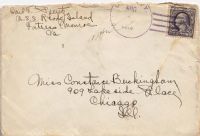 U.S.S. Rhode Island
Fortress Monroe
Va
Miss Constance Buckingham
909 Lakeside Place
Chicago
Ill.